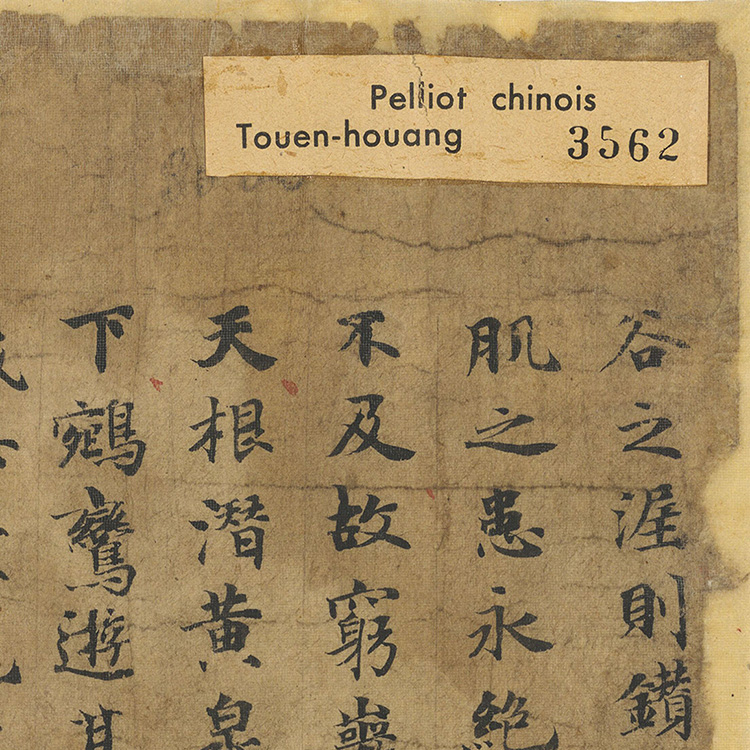 Pelliot chinois
Touen-houang 3562
谷之涯則鑽
肌之患永絕
不及故窮巖
天根潛黄泉
下鵷鸞遊其